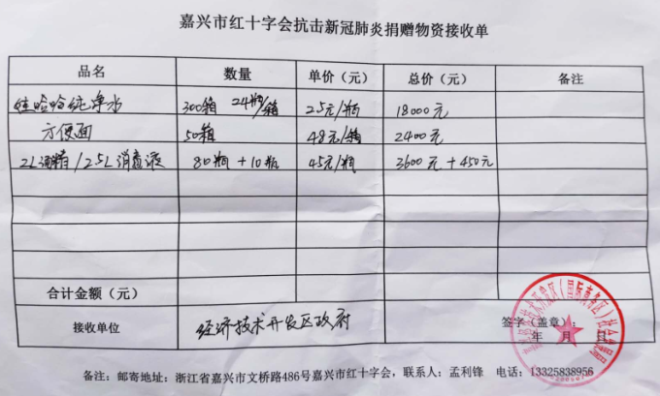 嘉兴市红十字会抗击新冠肺炎捐赠物资接收单
品名 数量 单价（元） 总价（元） 备注
娃哈哈纯净水 300箱 24瓶/箱 2.5元/瓶 18000元
方便面 50箱 48元/箱 2400元
2L酒精/2.5L消毒液 80瓶+10瓶 45元/瓶 3600元+450元
合计金额（元）
接收单位 经济技术开发区政府 签字（盖章）
年 月 日
备注：邮寄地址：浙江省嘉兴市文桥路486号嘉兴市红十字会，联系人：孟利锋 电话：13325838956